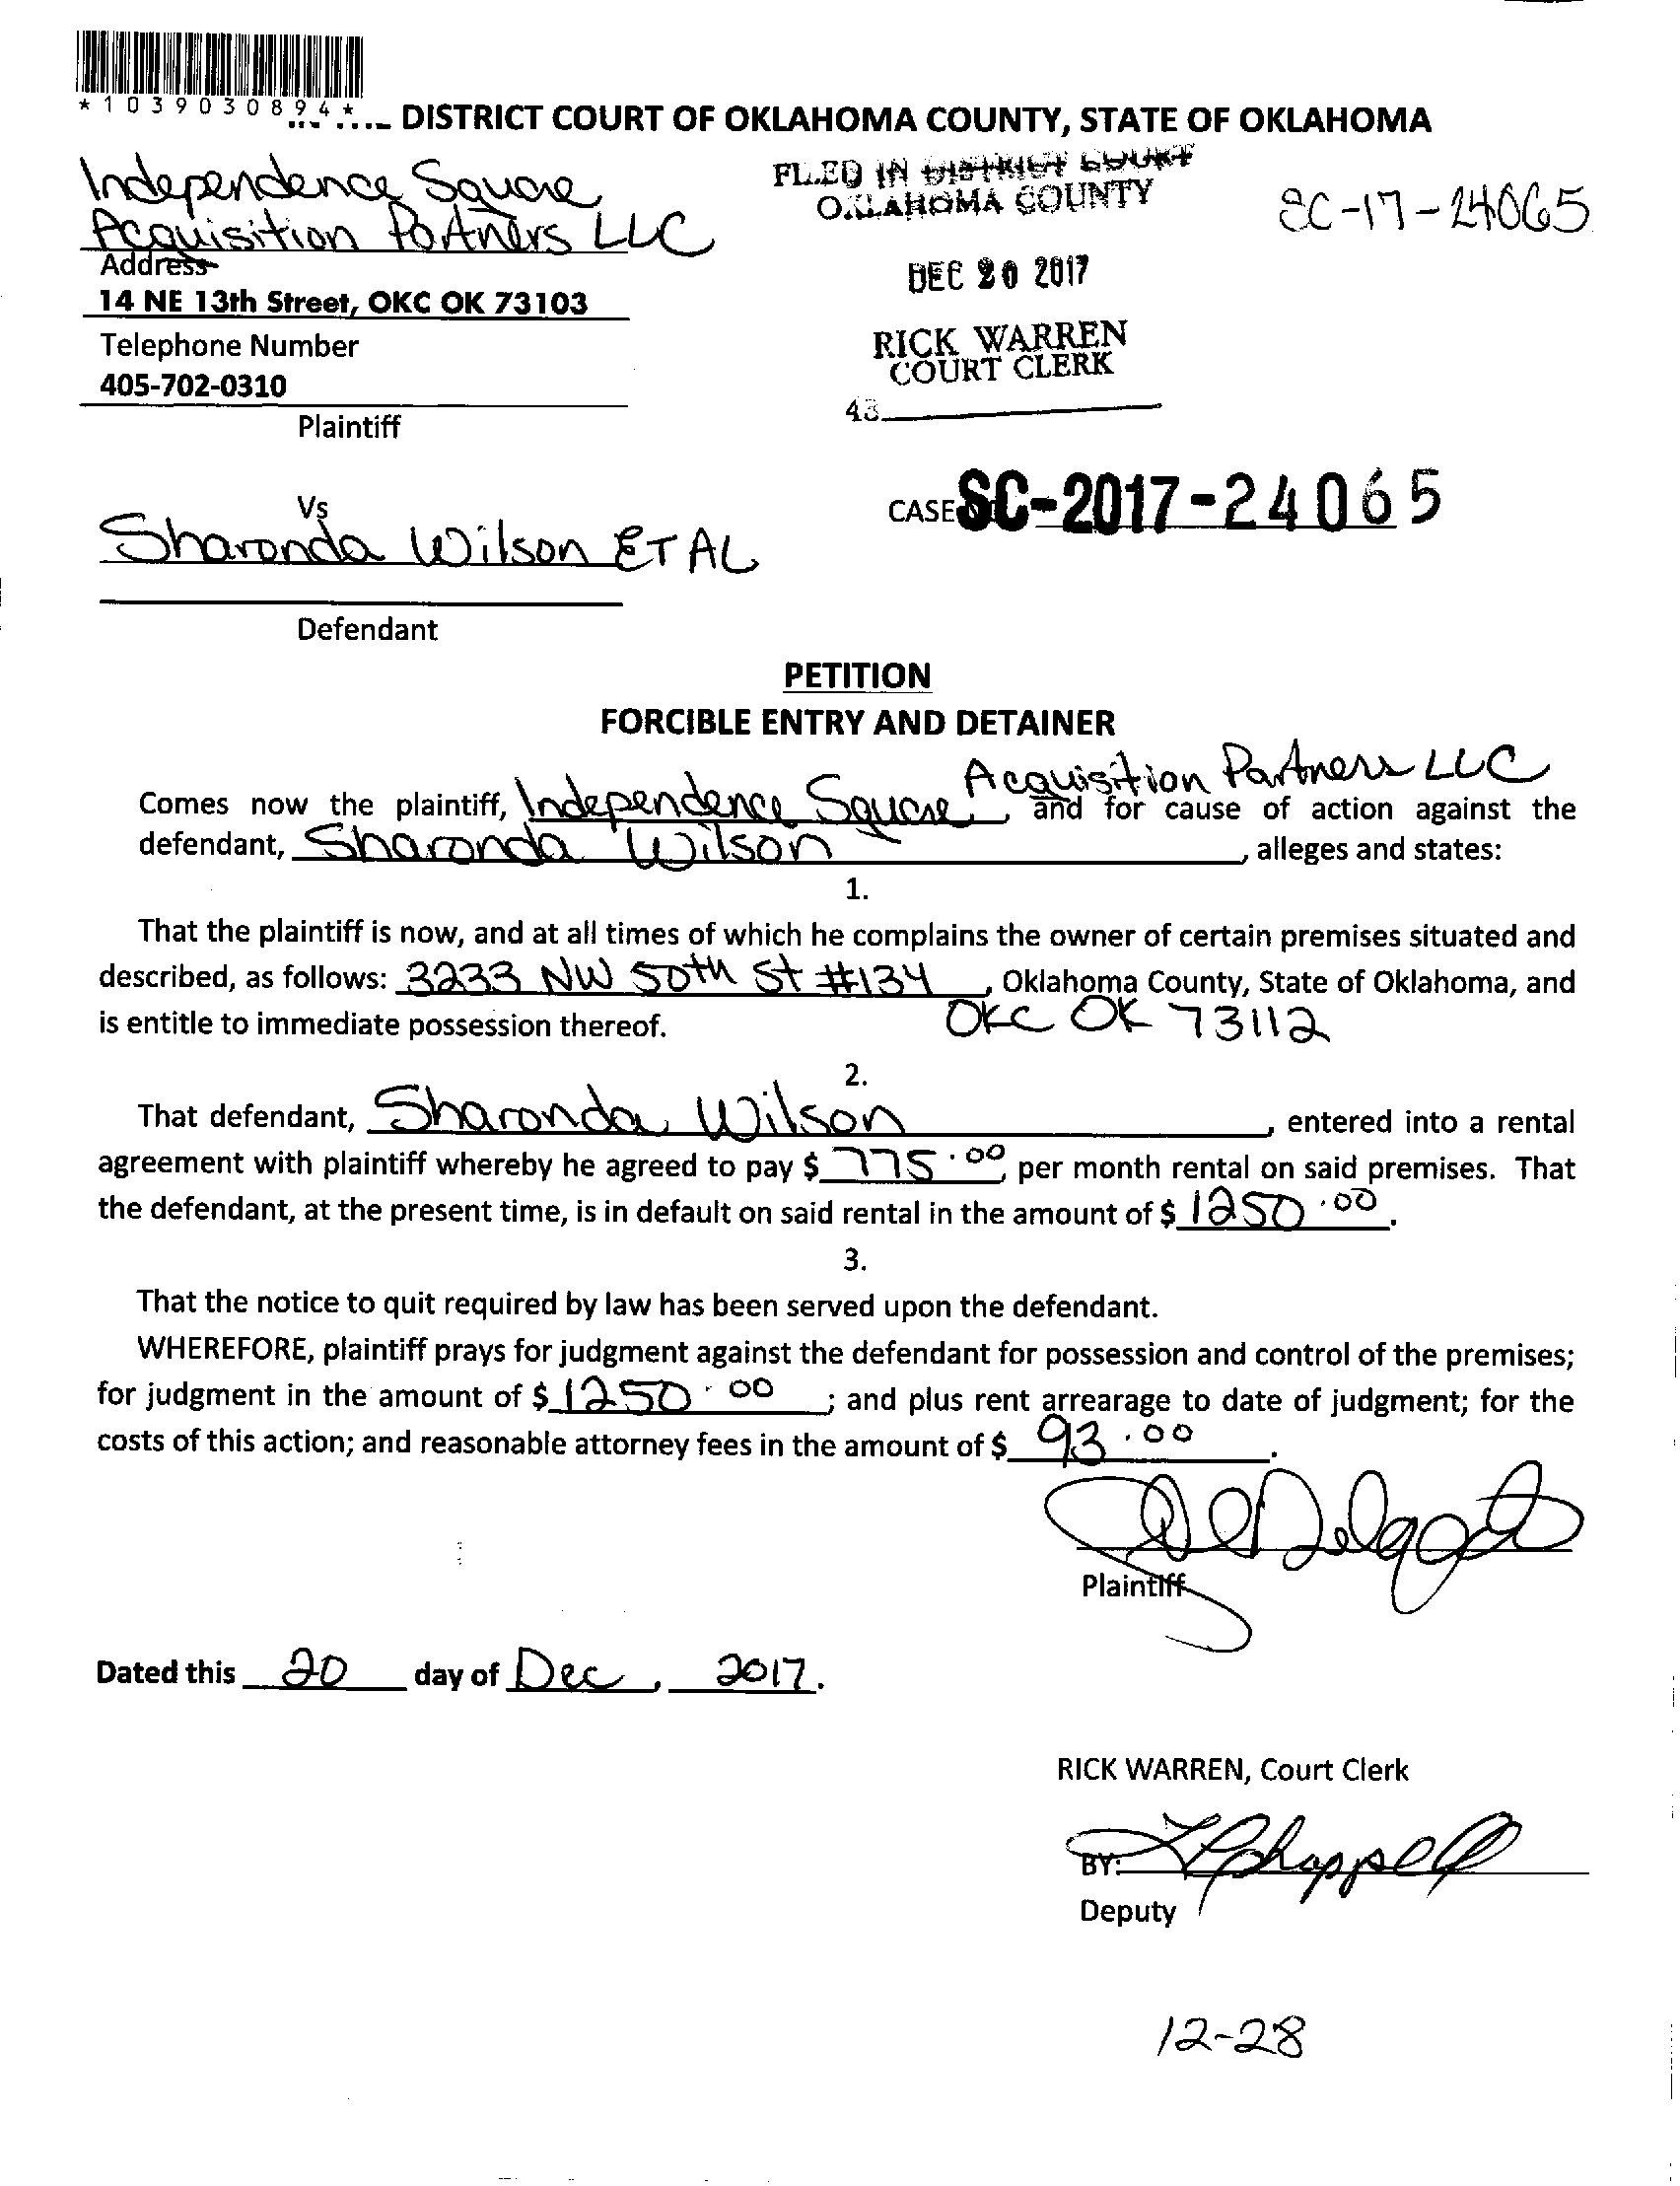 *1039030894*
DISTRICT COURT OF OKLAHOMA COUNTY, STATE OF OKLAHOMA
Independence Square
Acquisition Partners LLC
FILED IN DISTRICT COURT
OKLAHOMA COUNTY
SC-17-24065
Address
14 NE 13th Street, OKC OK 73103
DEC 20 2017
Telephone Number
405-702-0310
RICK WARREN
COURT CLERK
43
Plaintiff
Vs
CASE SC-2017-24065
Sharonda Wilson ET AL
Defendant
PETITION
FORCIBLE ENTRY AND DETAINER
Comes now the plaintiff, Independence Square Acquisition Partners LLC and for cause of action against the
defendant, Sharonda Wilson, alleges and states:
1.
That the plaintiff is now, and at all times of which he complains the owner of certain premises situated and
described, as follows: 3233 NW 50th St #134, Oklahoma County, State of Oklahoma, and
is entitle to immediate possession thereof. OKC OK 73112
2.
That defendant, Sharonda Wilson, entered into a rental
agreement with plaintiff whereby he agreed to pay $ 775.00, per month rental on said premises. That
the defendant, at the present time, is in default on said rental in the amount of $ 1250.00.
3.
That the notice to quit required by law has been served upon the defendant.
WHEREFORE, plaintiff prays for judgment against the defendant for possession and control of the premises;
for judgment in the amount of $ 1250.00; and plus rent arrearage to date of judgment; for the
costs of this action; and reasonable attorney fees in the amount of $ 93.00.
Plaintiff
Dated this 20 day of Dec, 2017.
RICK WARREN, Court Clerk
BY:
Deputy
12-28